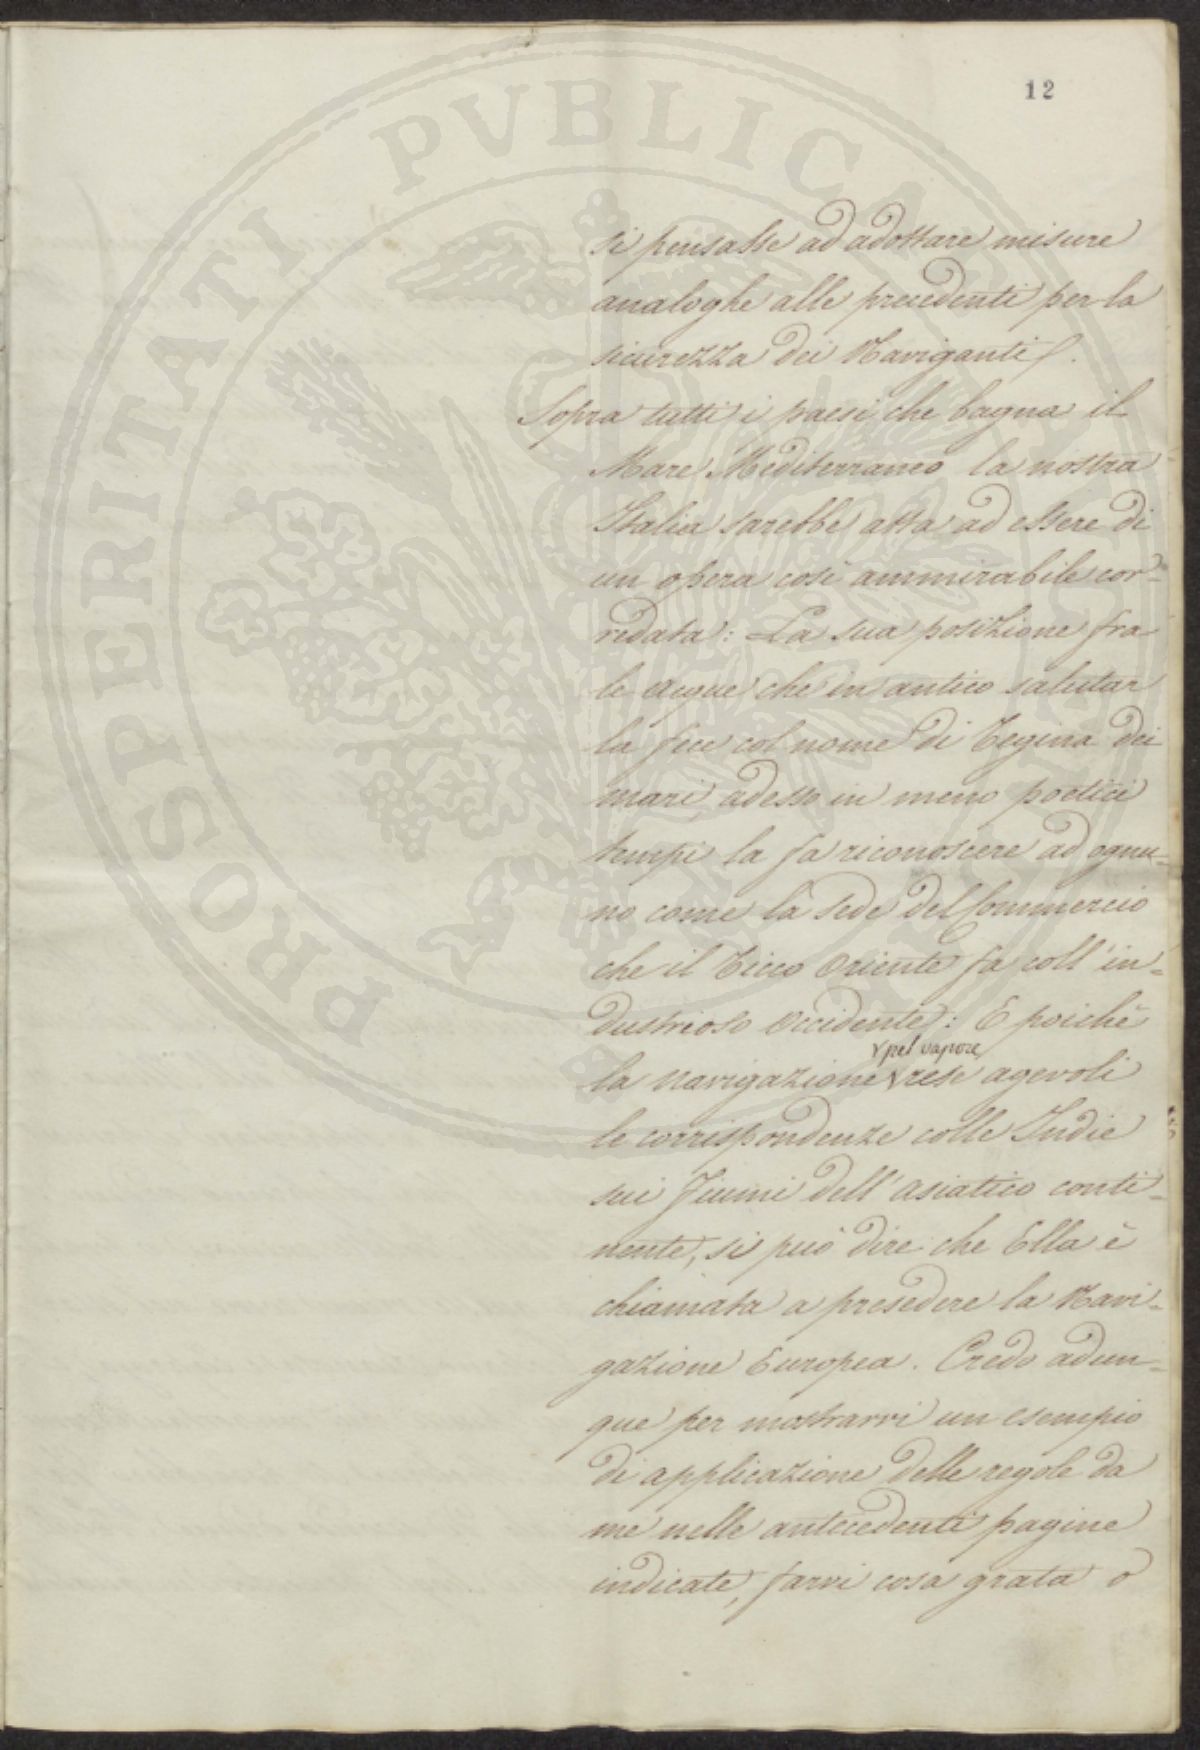 12
si pensasse ad adottare misure
analoghe alle precedenti per la
sicurezza dei Naviganti.
Sopra tutti i paesi che bagna il
Mare Mediterraneo la nostra
Italia sarebbe atta ad essere di
un opera così ammirabile cor-
redata: La sua posizione fra
le acque che in antico salutar
la fece col nome di Regina dei
mari, adesso in meno poetici
tempi la fa riconoscere ad ognu-
no come la sede del Commercio
che il Ricco Oriente fa coll'in-
dustrioso Occidente: E poichè
pel vapore
la navigazione rese agevoli
le corrispondenze colle Indie
sui fiumi dell'asiatico conti-
nente, si può dire che Ella è
chiamata a presedere la Navi-
gazione Europea. Credo adun-
que per mostrarvi un esempio
di applicazione delle regole da
me nelle antecedenti pagine
indicate, farvi cosa grata o
PROSPERITATI PVBLICAE